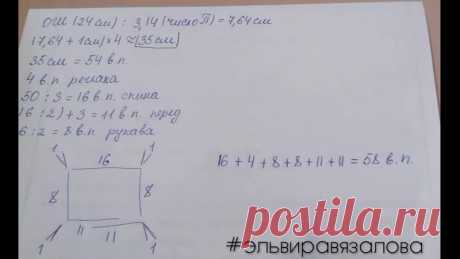 ОШ (24 см) : 3,14 (число П) = 7,64 см
(7,64 + 1 см) × 4 ≈ 35 см
35 см = 54 в.п.
4 в.п. реглана
50 : 3 = 16 в.п. спина
16 : 2) + 3 = 11 в.п. перед
6 : 2 = 8 в.п. рукава
1 1
16
8 8
11 11
1 1
16 + 4 + 8 + 8 + 11 + 11 = 58 в.п.
postila.ru
#эльвиравязалова